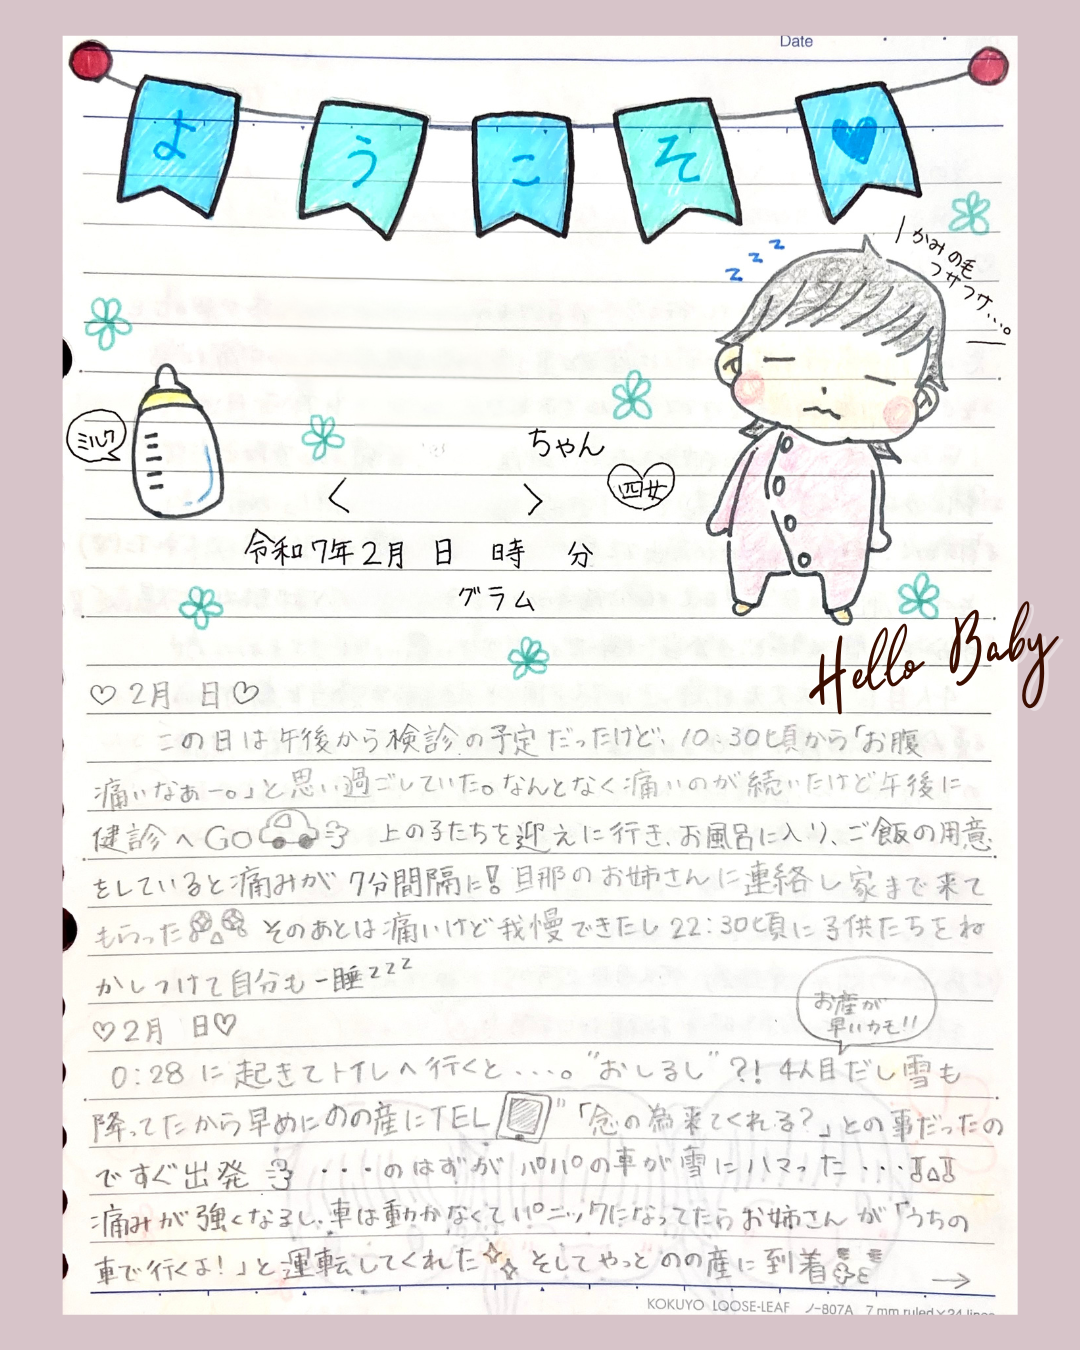 Date
ようこそ♥
かみの毛
フサフサ...。
ミルク
ちゃん
四女
く　　　　　>
令和7年2月 日 時 分
グラム
zzz
Hello Baby
♡2月 日♡
この日は午後から検診の予定だったけど、10:30頃から「お腹
痛いなぁー。」と思い過ごしていた。なんとなく痛いのが続いたけど午後に
健診へGO 上の子たちを迎えに行き、お風呂に入り、ご飯の用意
をしていると痛みが7分間隔に!旦那のお姉さんに連絡し家まで来て
もらった そのあとは痛いけど我慢できたし22:30頃に子供たちをね
かしつけて自分も一睡zzz
♡2月 日♡
お産が
早いカモ!!
0:28に起きてトイレへ行くと....。"おしるし"?! 4人目だし雪も
降ってたから早めにのの産にTEL 「念の為来てくれる?」との事だったの
ですぐ出発 ・・・のはずがパパの車が雪にハマった・・・
痛みが強くなるし、車は動かなくてパニックになってたらお姉さんが「うちの
車で行くよ!」と運転してくれた そしてやっとのの産に到着
→
KOKUYO LOOSE-LEAF ノ-807A 7mm ruled×34 lines